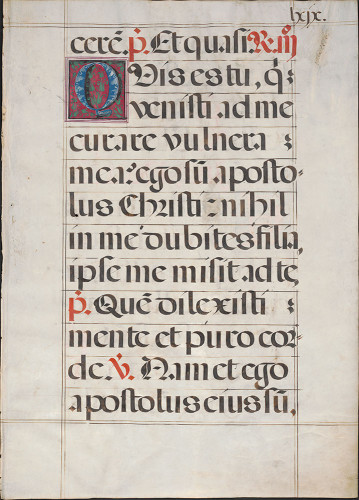 lxix.
cerē. p̄. Et quasi R. iij
Quis es tu, q̄
venisti ad me
curare vulnera
mea: ego sū aposto-
lus Christi: nihil
in me dubites filia,
ipse me misit ad te,
p̄. Quē dilexisti
mente et puro cor-
de. V̄. Nam et ego
apostolus eius sū.